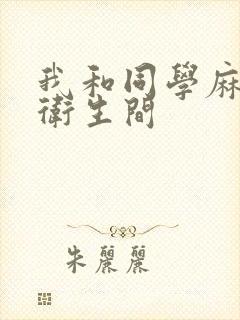 我和同學麻
衛生間
朱麗麗